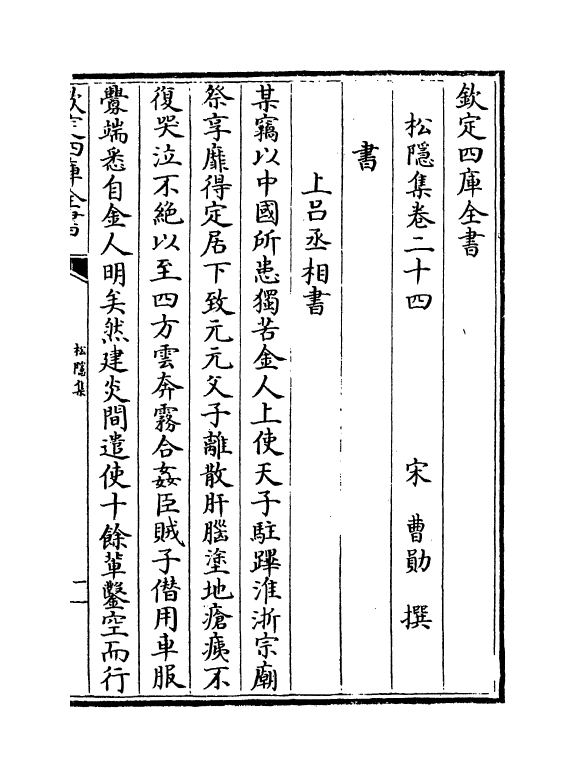 欽定四庫全書
松隱集卷二十四
宋 曹勛 撰
書
上呂丞相書
某竊以中國所患獨若金人上使天子駐蹕淮浙宗廟
祭享靡得定居下致元元父子離散肝腦塗地瘡痍不
復哭泣不絶以至四方雲奔霧合姦臣賊子僭用車服
釁端悉自金人明矣然建炎間遣使十餘軰鑿空而行
欽定四庫全書
松隱集